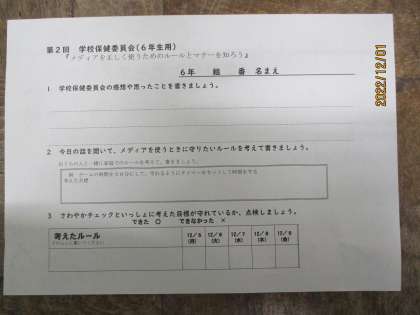 第2回　学校保健委員会(6年生用)
『メディアを正しく使うためのルールとマナーを知ろう』
6年　組　番　名まえ
1　学校保健委員会の感想や思ったことを書きましょう。
2　今日の話を聞いて、メディアを使うときに守りたいルールを考えて書きましょう。
おうちの人と一緒に家庭でのルールを考えて、書きましょう。
3　さわやかチェックといっしょに考えた目標が守れているか、点検しましょう。
できた　○　できなかった　×
考えたルール　12/5(月)　12/6(火)　12/7(水)　12/8(木)　12/9(金)
2022/12/01